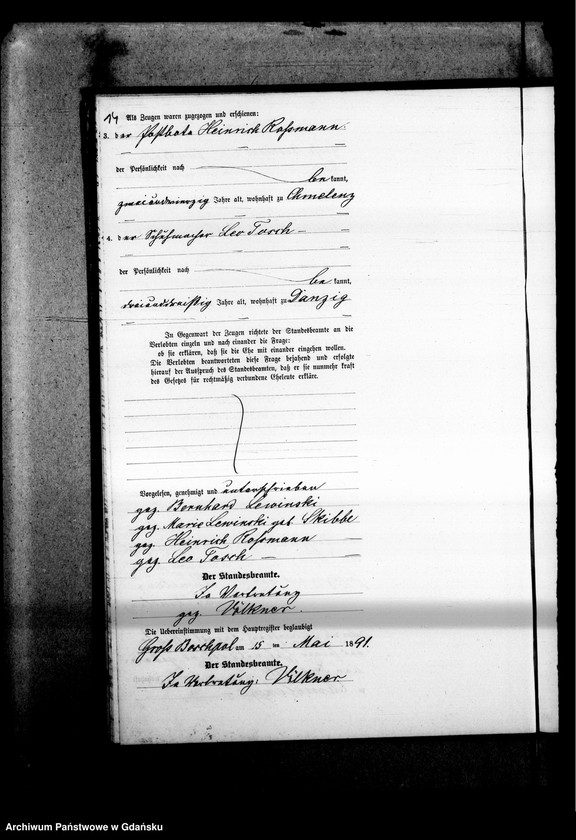 14 Als Zeugen waren zugezogen und erschienen:
3. der Postbote Heinrich Roßmann
der Persönlichkeit nach
bekannt,
zweiundvierzig Jahre alt, wohnhaft zu Chmelenz
4. der Schuhmacher Leo Tosch
der Persönlichkeit nach
bekannt,
dreiunddreißig Jahre alt, wohnhaft zu Danzig
In Gegenwart der Zeugen richtete der Standesbeamte an die
Verlobten einzeln und nach einander die Frage:
ob sie erklären, daß sie die Ehe mit einander eingehen wollen.
Die Verlobten beantworteten diese Frage bejahend und erfolgte
hierauf der Ausspruch des Standesbeamten, daß er sie nunmehr kraft
des Gesetzes für rechtmäßig verbundene Eheleute erkläre.
Vorgelesen, genehmigt und unterschrieben
gez. Bernhard Lewinski
gez. Marie Lewinski geb Skibbe
gez. Heinrich Roßmann
gez. Leo Tosch
Der Standesbeamte.
In Vertretung
gez. Völkner
Die Uebereinstimmung mit dem Hauptregister beglaubigt
Groß Boschpol am 15 ten Mai 1891.
Der Standesbeamte.
In Vertretung: Völkner
Archiwum Państwowe w Gdańsku